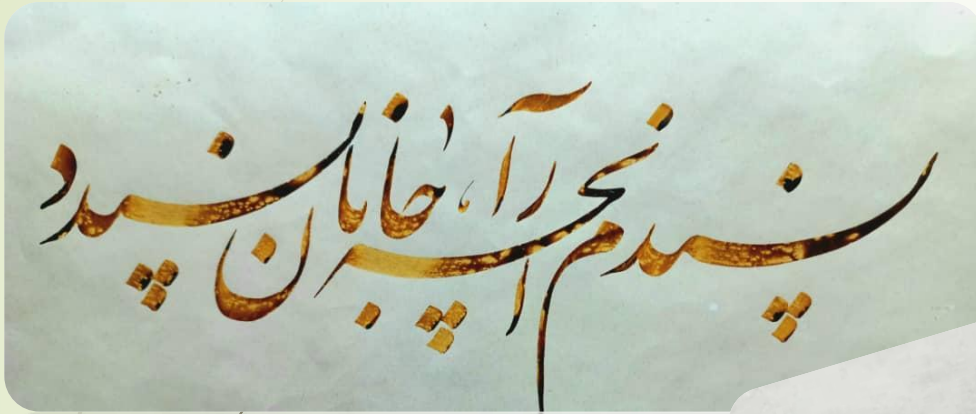 پسندم آنچه را جانان پسندد